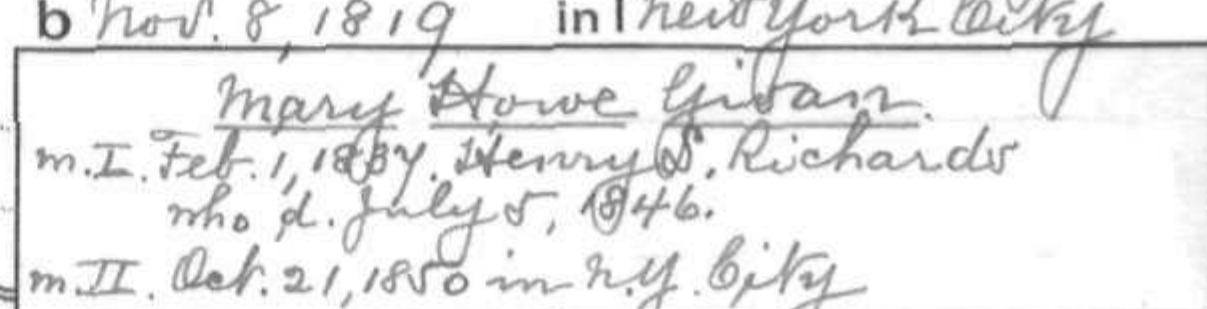 b Nov. 8, 1819 in New York City
Mary Howe Givan.
m. I. Feb. 1, 1837. Henry S. Richards
who d. July 5, 1846.
m. II. Oct. 21, 1850 in N.Y. City